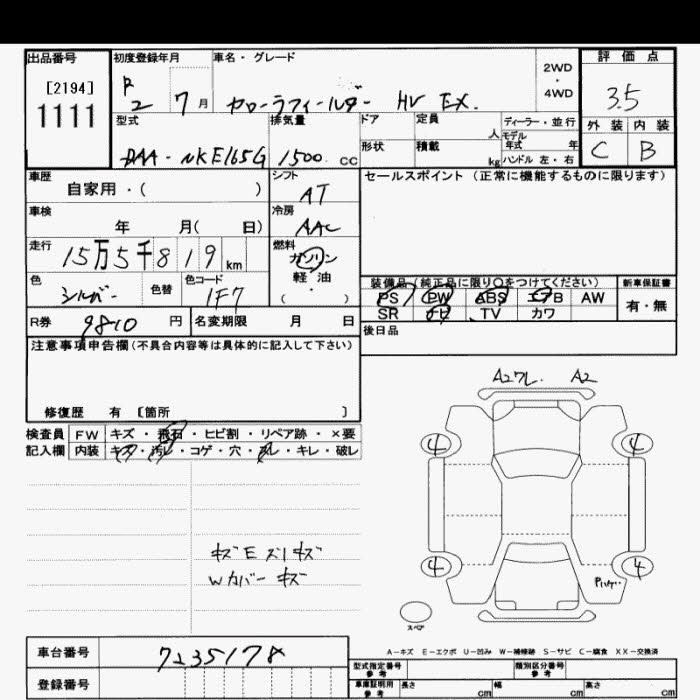 出品番号 初度登録年月 車名・グレード 評価点
[2194] R 2WD
1111 2 7月 カローラフィールダー HV EX. ・ 4WD 3.5
型式 排気量 ドア 定員 人 ディーラー・並行 外装 内装
モデル年式 年
DAA-NKE165G 1500 CC 形状 積載 kg ハンドル 左・右 C B
車歴 シフト セールスポイント(正常に機能するものに限ります)
自家用・( ) AT
車検 冷房
年 月( 日) AAC
走行 燃料
15万5千819km ガソリン
軽・油
( )
色 色替 色コード 装備品(純正品に限り○をつけてください) 新車保証書
シルバー 1F7 PS PW ABS エアB AW 有・無
SR ナビ TV カワ
R券 9810 円 名変期限 月 日 後日品
注意事項申告欄(不具合内容等は具体的に記入して下さい)
修復歴 有 〔箇所 〕
検査員 FW キズ・飛石・ヒビ割・リペア跡・×要
記入欄 内装 キズ・汚レ・コゲ・穴・スレ・キレ・破レ
A27L. A2
4 4
4 4
キズE
Wカバー キズ
スペア
A-キズ E-エクボ U-凹み W-補修跡 S-サビ C-腐食 XX-交換済
車台番号 7235178 型式指定番号 参考 類別区分番号 参考
登録番号 車庫証明用 参考 長さ cm 幅 cm 高さ cm